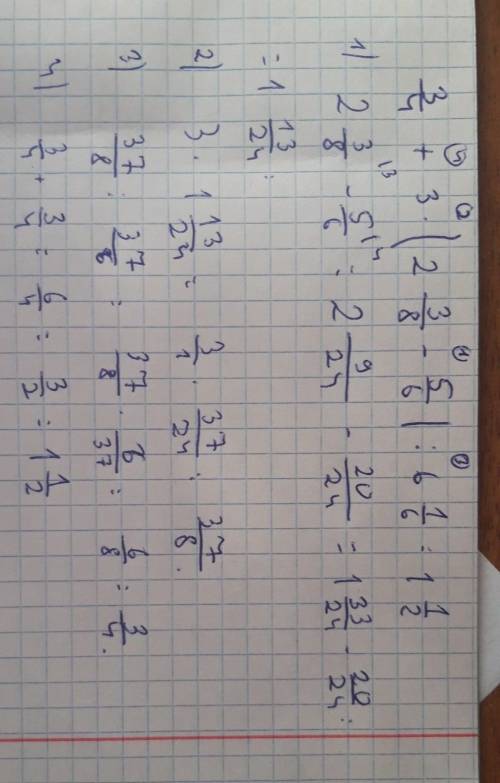 3/4 + 3 · (2 3/8 - 5/6) : 6 1/6 = 1 1/2
1) 2 3/8 - 5/6 = 2 9/24 - 20/24 = 1 33/24 - 20/24 =
= 1 13/24 .
2) 3 · 1 13/24 = 3/1 · 37/24 = 37/8 .
3) 37/8 : 37/6 = 37/8 · 6/37 = 6/8 = 3/4 .
4) 3/4 + 3/4 = 6/4 = 3/2 = 1 1/2